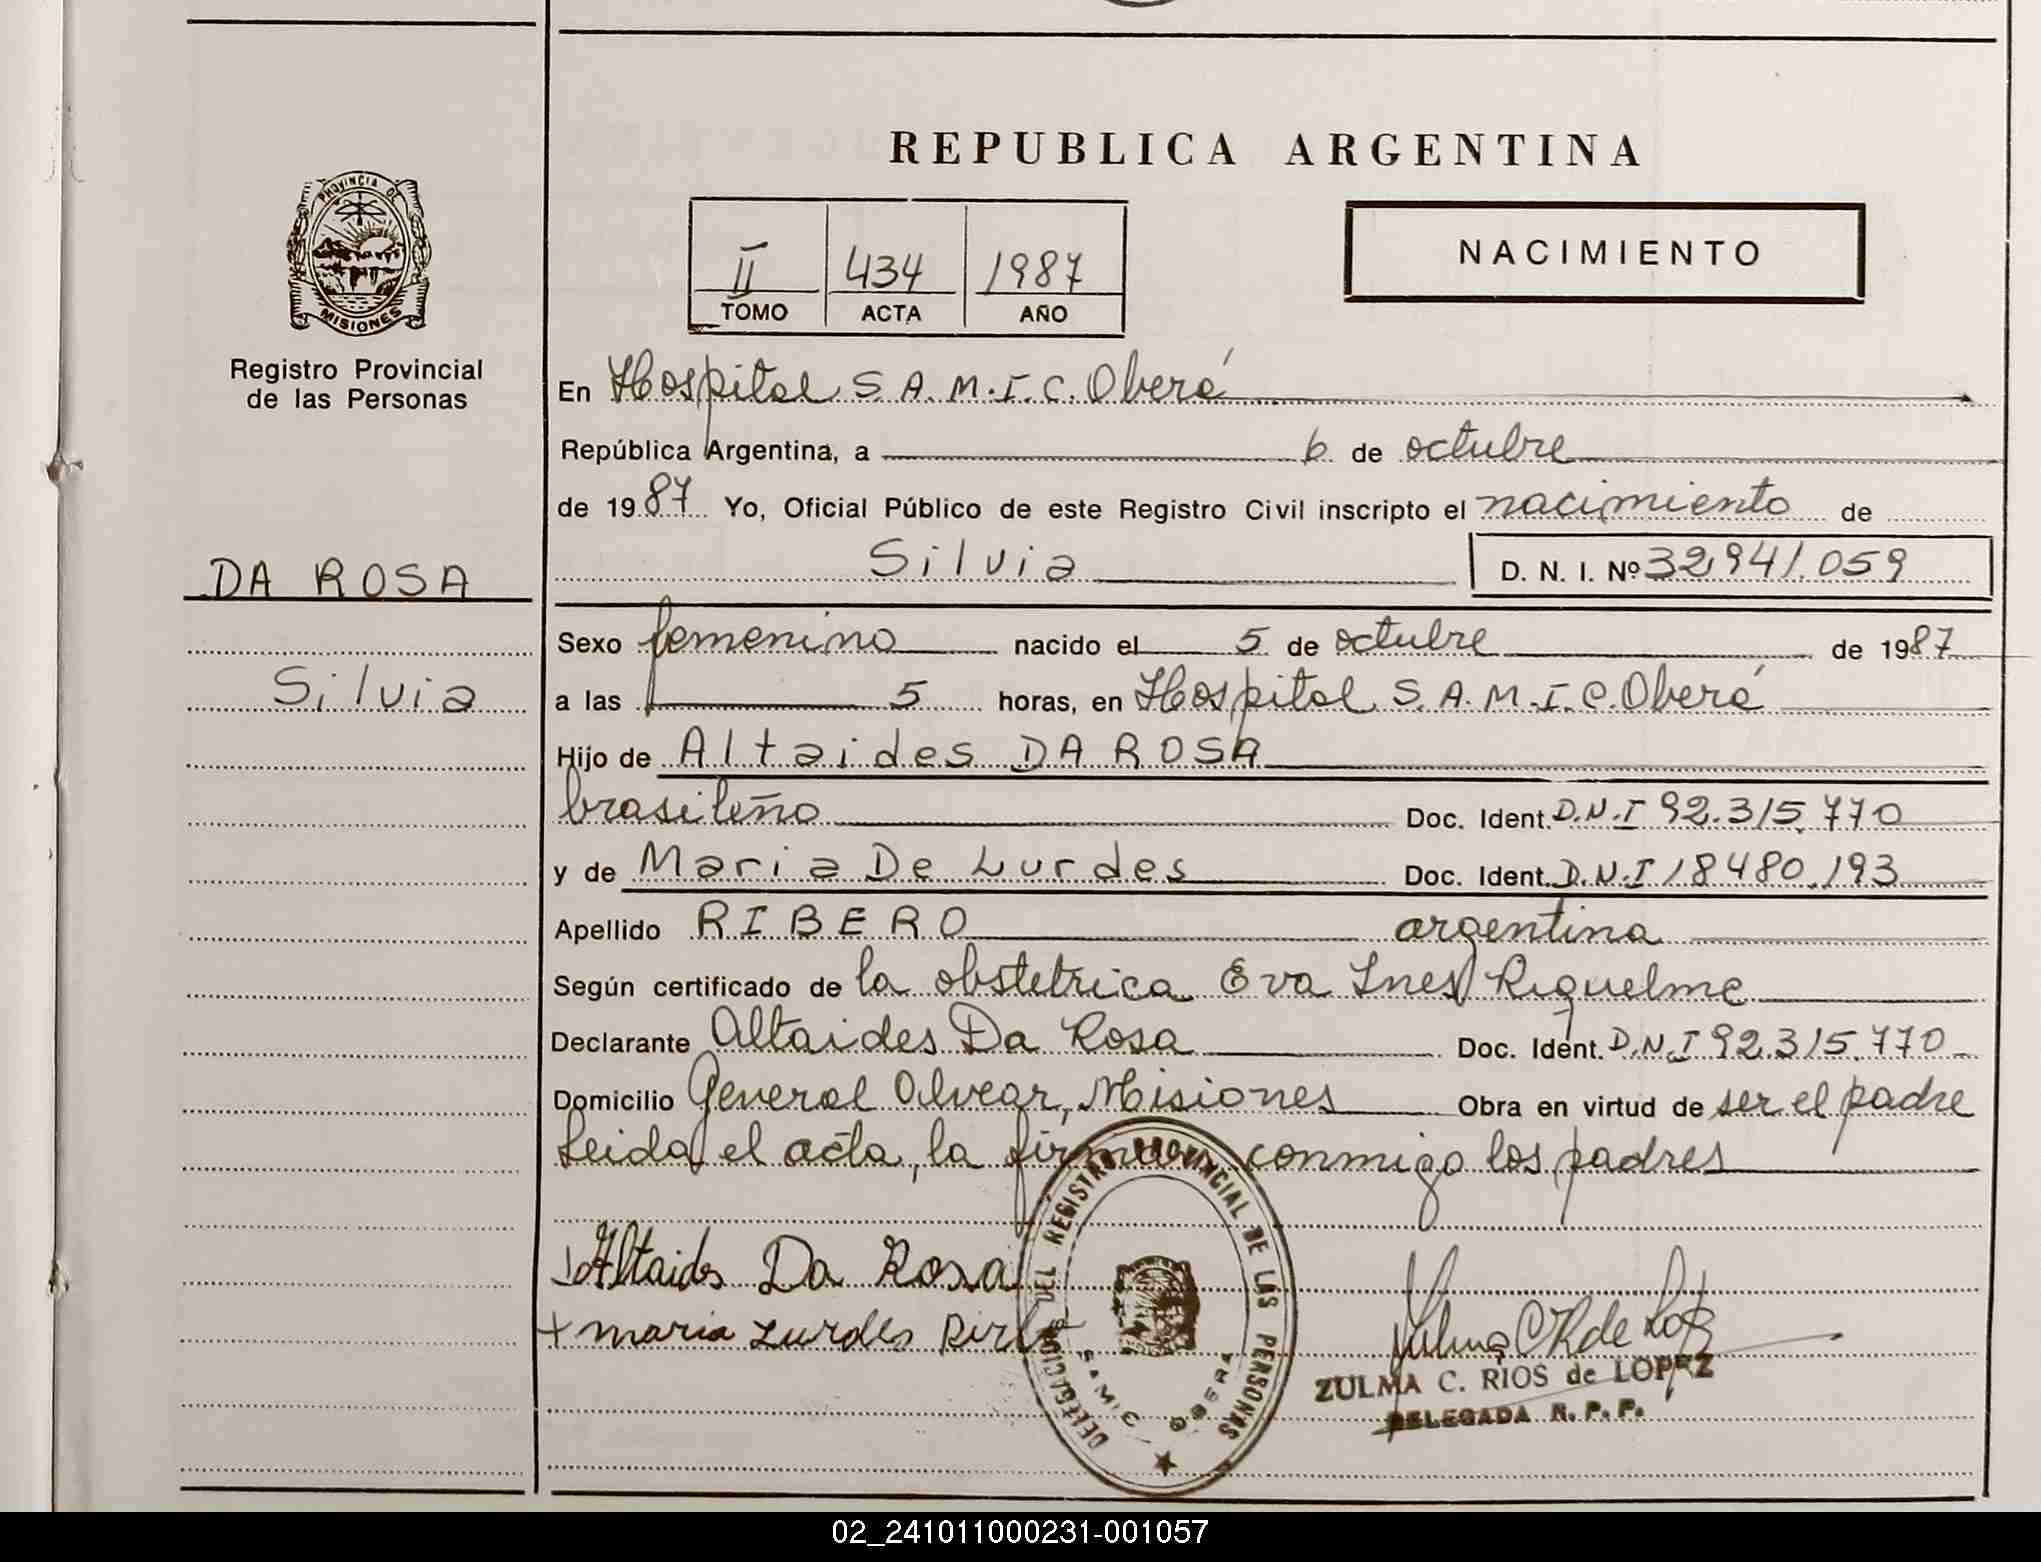 REPUBLICA ARGENTINA
PROVINCIA DE
MISIONES
Registro Provincial
de las Personas
DA ROSA
Silvia
II 434 1987
TOMO ACTA AÑO
NACIMIENTO
En Hospital S.A.M.I.C. Oberá
República Argentina, a 6 de octubre
de 1987 Yo, Oficial Público de este Registro Civil inscripto el nacimiento de
Silvia D. N. I. Nº 32.941.059
Sexo femenino nacido el 5 de octubre de 1987
a las 5 horas, en Hospital S.A.M.I.C. Oberá
Hijo de Altaides DA ROSA
brasileño Doc. Ident. D.N.I 92.315.770
y de Maria De Lurdes Doc. Ident. D.N.I 18480.193
Apellido RIBERO argentina
Según certificado de la obstetrica Eva Ines Riquelme
Declarante Altaides Da Rosa Doc. Ident. D.N.I 92.315.770
Domicilio General Alvear, Misiones Obra en virtud de ser el padre
Leida el acta, la firman conmigo los padres
Altaides Da Rosa
+ maria Lurdes
DELEGACION DEL REGISTRO PROVINCIAL DE LAS PERSONAS
SAMIC OBERA
ZULMA C. RIOS de LOPEZ
DELEGADA R. P. P.
02_241011000231-001057